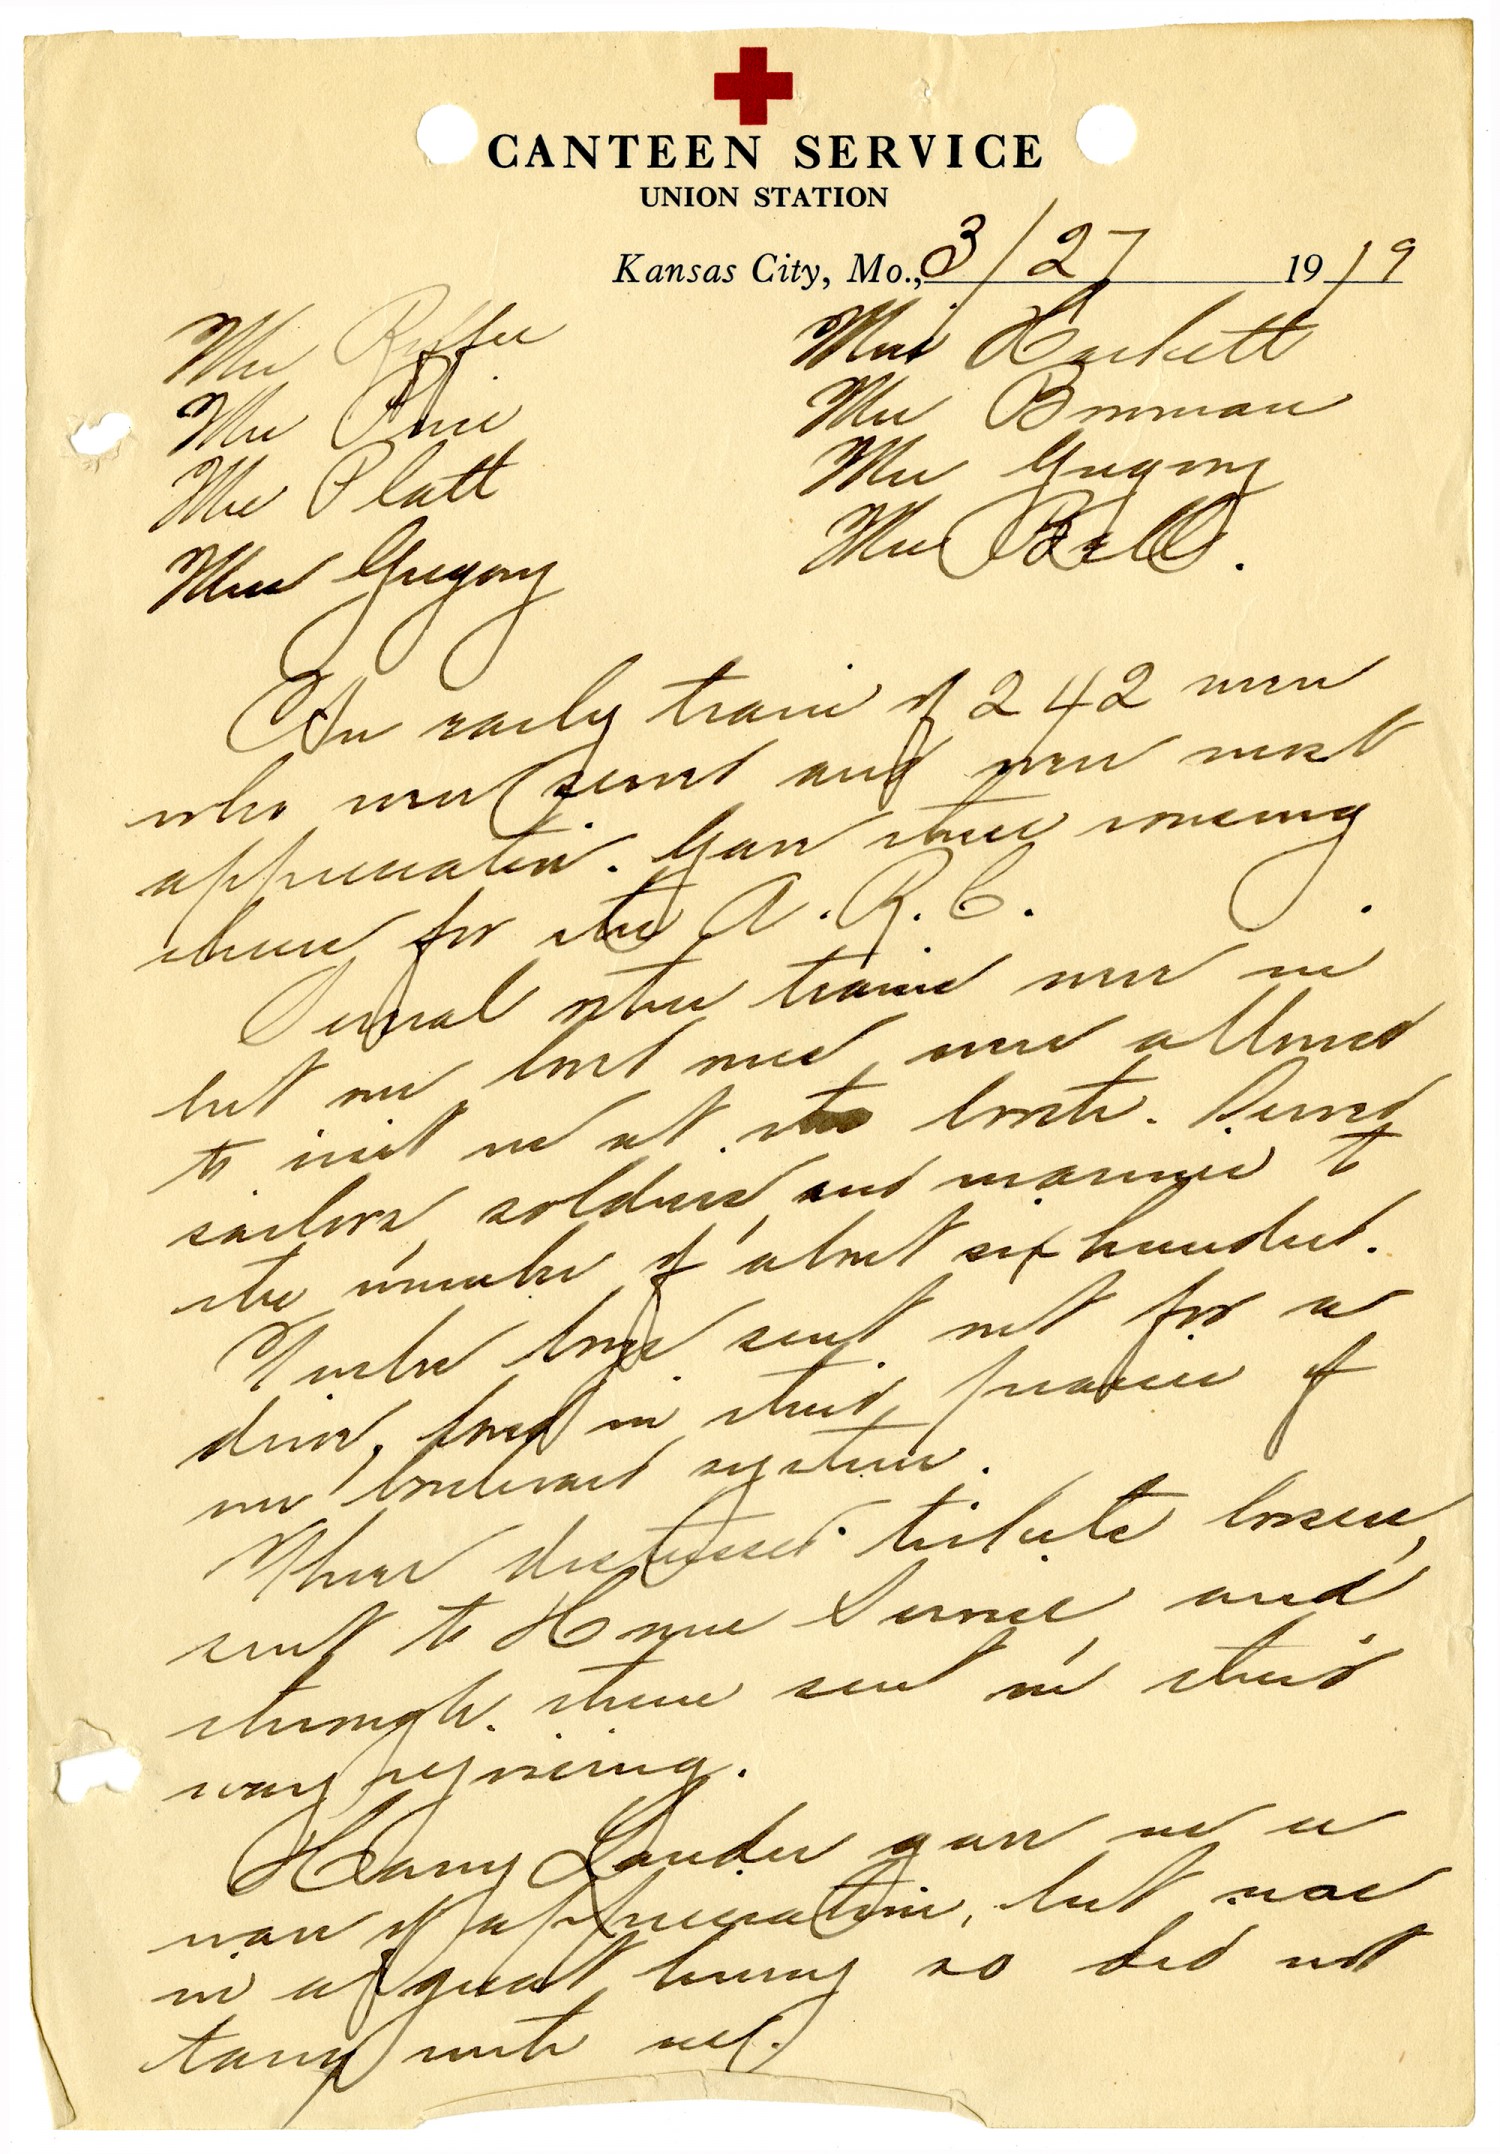 CANTEEN SERVICE
UNION STATION
Kansas City, Mo., 3/27 1919
Mrs Miss Hackett
Mrs Price Mrs Bowman
Mrs Platt Mrs Gregory
Miss Gregory Mrs Bell.
An early train of 242 men
who were served and were most
appreciative. Gave three rousing
cheers for the A. R. C.
Several other trains were in
but our boys were allowed
to visit us at the booth. Served
sailors, soldiers, and marines to
the number of about six hundred.
Twelve boys sent out for a
drive, loud in their praises of
our boulevard system.
Three distressed tickets losers,
sent to Home Service, and
through them sent on their
way rejoicing.
Harry Lauder gave us a
wave of appreciation, but was
in a great hurry so did not
tarry with us.